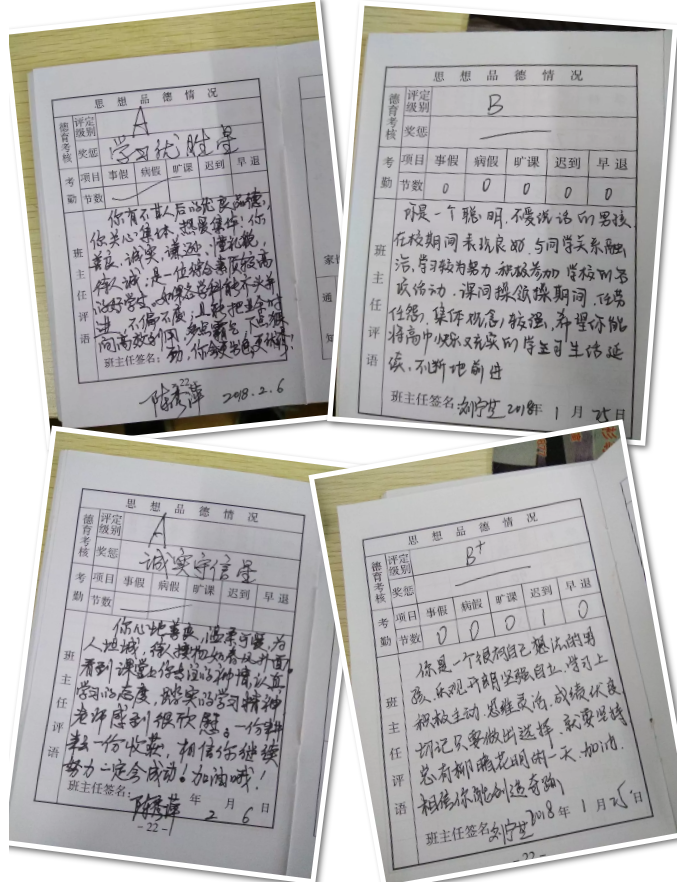 思想品德情况
德育考核 评定级别 A
奖惩 学习优胜星
考勤 项目 事假 病假 旷课 迟到 早退
节数
班主任评语
你有不甘人后的优良品德,
你关心集体,热爱集体!你
善良、诚实、谦逊,懂礼貌,
待人诚,是一位综合素质较高
的好学生,如果各学科能齐头并
进,不偏不废,
班主任签名:
22
陈秀萍 2018.2.6
思想品德情况
德育考核 评定级别 B
奖惩 —
考勤 项目 事假 病假 旷课 迟到 早退
节数 0 0 0 0 0
班主任评语
你是一个聪明,不爱说话的男孩,
在校期间表现良好,与同学关系融
洽,学习较为努力,积极参加学校的各
项活动,课间操锻操期间,任劳
任怨,集体观念较强,希望你能
将高中快乐又充实的学生生活延
续,不断地前进
班主任签名 刘宁芝 2018年1月25日
思想品德情况
德育考核 评定级别 A
奖惩 诚实守信星
考勤 项目 事假 病假 旷课 迟到 早退
节数
班主任评语
你心地善良,温柔可爱,为
人坦诚,待人接物如春风拂面。
看到课堂上你专注的神情,认真
学习的态度,踏实的学习精神
老师感到很欣慰。一份耕
耘一份收获,相信你继续
努力一定会成功。加油哦!
班主任签名: 陈秀萍 年 2 月 6 日
- 22 -
思想品德情况
德育考核 评定级别 B+
奖惩 —
考勤 项目 事假 病假 旷课 迟到 早退
节数 0 0 0 1 0
班主任评语
你是一个很有自己想法的男
孩,乐观开朗坚强自立,学习上
积极主动,思维灵活,成绩优良
切记只要做出选择,就要坚持
总有柳暗花明的一天,加油,
相信你能创造奇迹
班主任签名 刘宁芝 2018年1月25日
- 22 -